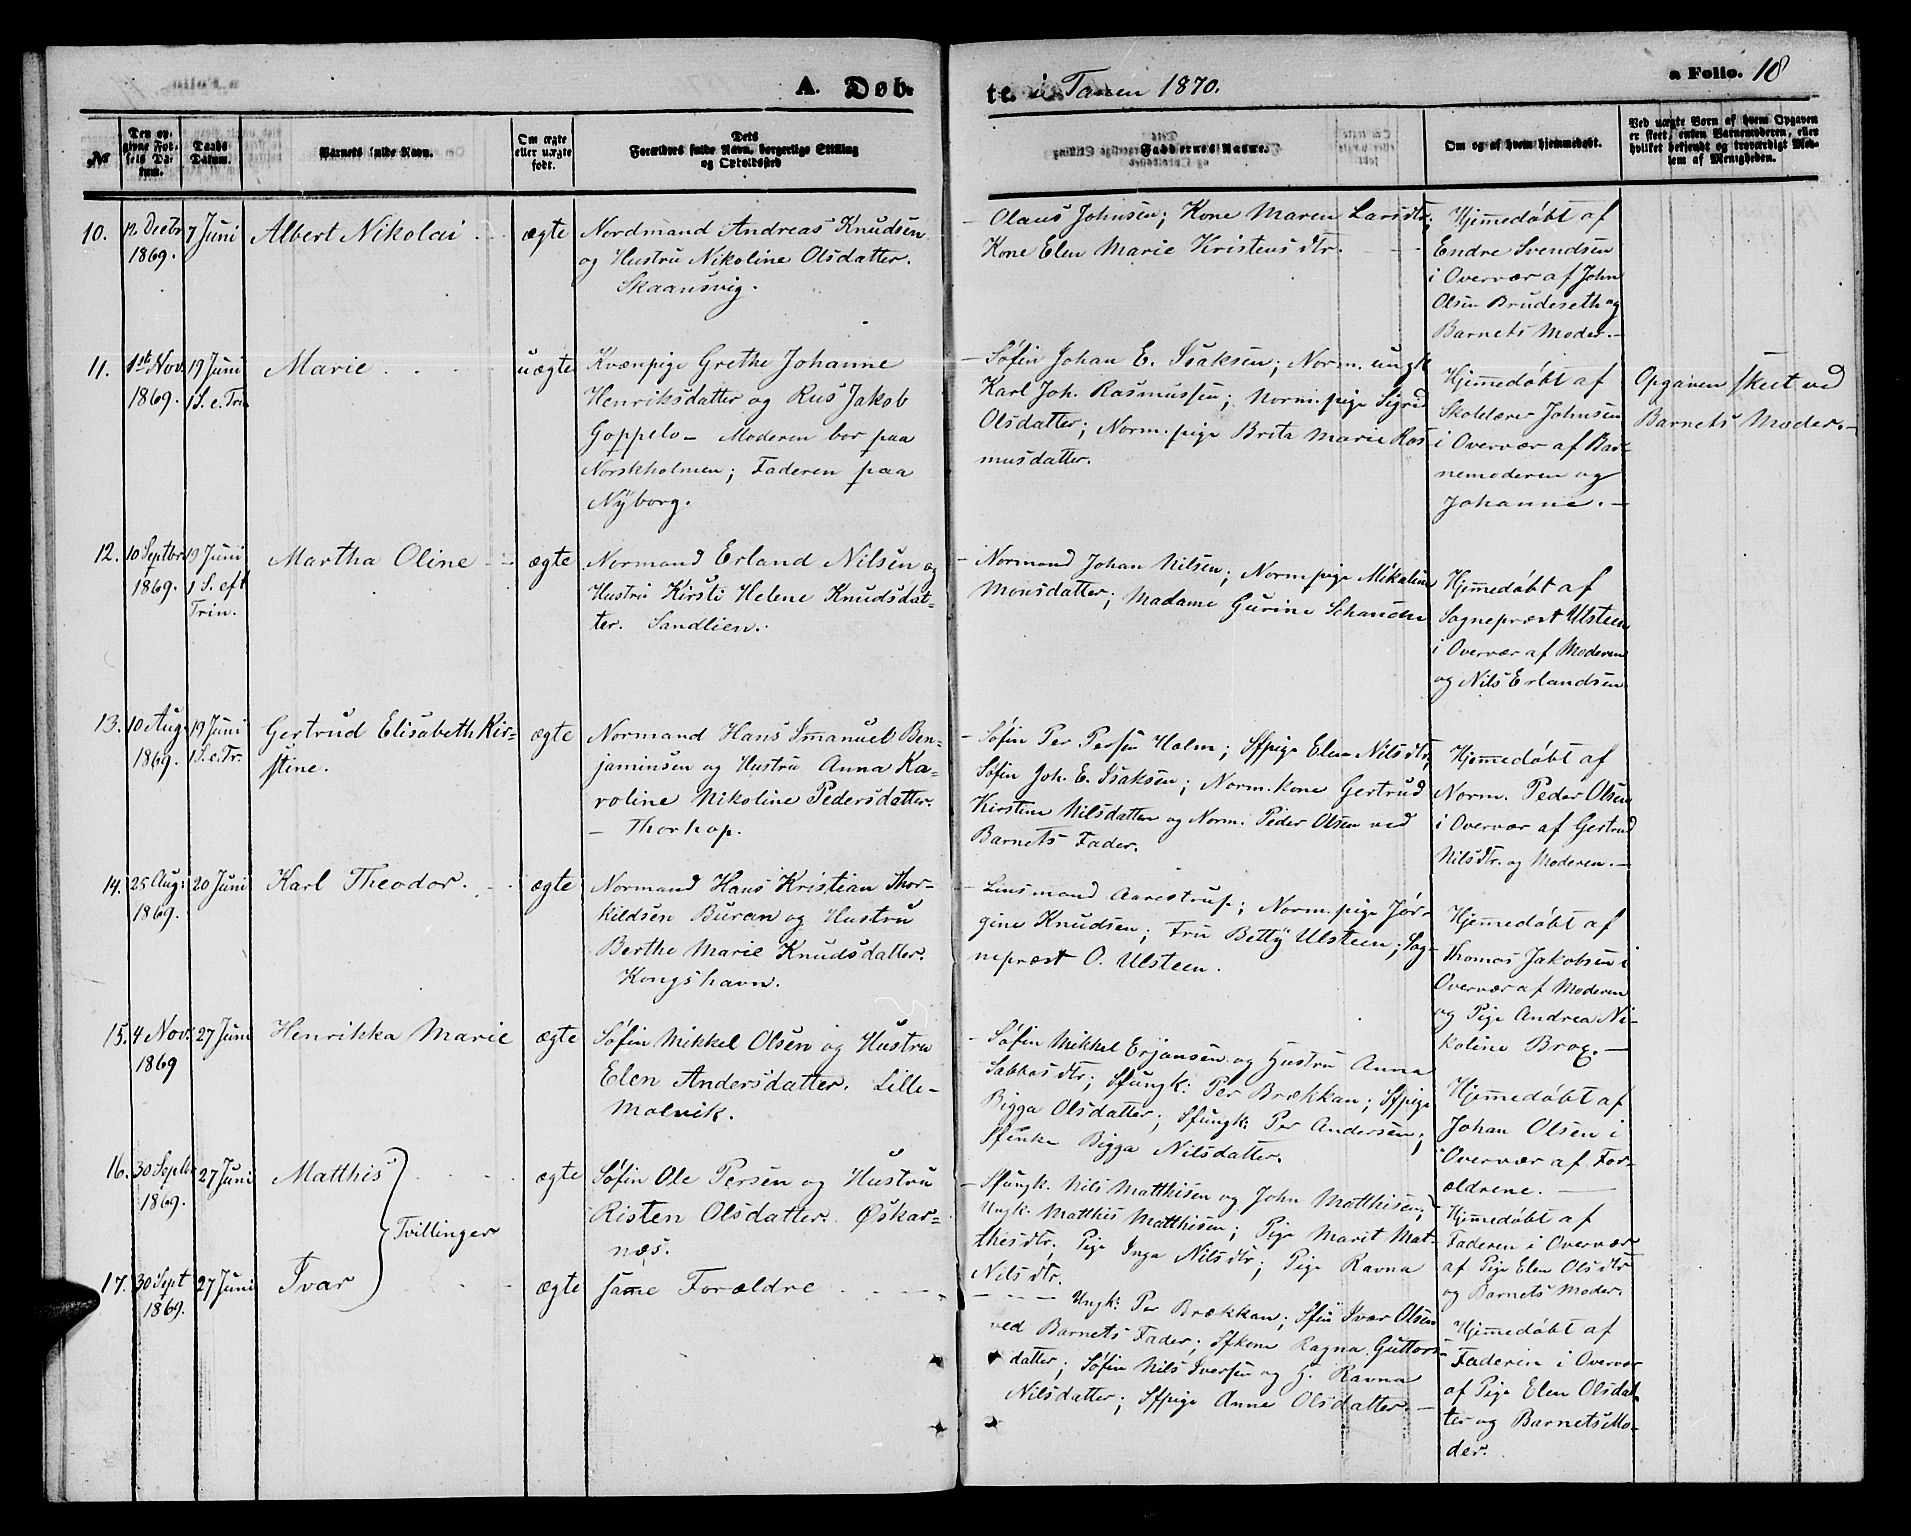 A. Døb-
te. i Tanen 1870.
a Folio. 18
№
Den op-
givne Fød-
sels Da-
tum.
Daabs
Datum.
Barnets fulde Navn.
Om ægte
eller uægte
født.
Dets
Forældres fulde Navn, borgerlige Stilling
og Opholdssted
Faddernes Navne.
Om og af hvem hjemmedøbt.
Ved uægte Børn af hvem Opgaven
er skeet, enten Barnemoderen, eller
hvilket bekjendt og troværdigt Med-
lem af Menigheden.
10. 12 Decbr 7 Juni Albert Nikolai ægte Nordmand Andreas Knudsen
1869. og Hustru Nikoline Olsdatter.
Skaansvig.
- Olaus Johnsen; Kone Maren Larsdtr;
Kone Elen Marie Kristensdtr.
Hjemmedøbt af
Endre Svendsen
i Overvær af John
Olsen Brudeseth og
Barnets Moder.-
11. 1ste Nov. 19 Juni Marie uægte Kvænpige Grethe Johanne
1869. 1 S. e. Trin Henriksdatter og Rus Jakob
Goppelo - Moderen bor paa
Norskholmen; Faderen paa
Nÿborg.
- Søfin Johan E. Isaksen; Norm. ungk
Karl Joh. Rasmussen; Norm. pige Sigrid
Olsdatter; Norm. pige Brita Marie Ras-
musdatter.
Hjemmedøbt af
Skolelærer Johnsen
i Overvær af Bar-
nemoderen og
Johanne.-
Opgaven skeet ved
Barnets Moder.-
12. 10 Septbr 19 Juni Martha Oline ægte Normand Erland Nilsen og
1869. 1 S. eft Hustru Kirsti Helene Knudsdat-
Trin. ter. Sandlien.
- Normand Johan Nilsen; Norm. pige Mikaline
Monsdatter; Madame Gurine Schancke
Hjemmedøbt af
Sognepræst Ulsteen
i Overvær af Moderen
og Nils Erlandsen
13. 10 Aug. 19 Juni Gertrud Elisabeth Kir- ægte Normand Hans Imanuel Ben-
1869. 1 S. e. Tr. stine. jaminsen og Hustru Anna Ka-
roline Nikoline Pedersdatter.
- Thorhop.
- Søfin Per Persen Holm; Sfpige Elen Nilsdtr;
Søfin Joh. E. Isaksen; Norm. kone Gertrud
Kirstine Nilsdatter og Norm. Peder Olsen ved
Barnets Fader.
Hjemmedøbt af
Norm. Peder Olsen
i Overvær af Gertrud
Nilsdtr. og Moderen.-
14. 25 Aug: 20 Juni Karl Theodor. ægte Normand Hans Kristian Thor-
1869. kildsen Buran og Hustru
Berthe Marie Knudsdatter.
Kongshavn.
- Lensmand Aarestrup; Norm. pige Jør-
gine Knudsen; Fru Bettÿ Ulsteen; Sog-
nepræst O. Ulsteen.
Hjemmedøbt af
Thomas Jakobsen i
Overvær af Moderen
og Pige Andrea Ni-
koline Brox.-
15. 4 Nov. 27 Juni Henrikka Marie ægte Søfin Mikkel Olsen og Hustru
1869 Elen Andersdatter. Lille-
Molvik.
- Søfin Mikkel Erjansen og Hustru Anna
Sabbasdtr; Sfungk: Per Brækkan; Sfpige
Bigga Olsdatter; Sfungk: Per Andersen;
Sfenke Bigga Nilsdatter.
Hjemmedøbt af
Johan Olsen i
Overvær af For-
ældrene.
16. 30 Septb. 27 Juni Matthis ægte Søfin Ole Persen og Hustru
1869. Tvillinger Risten Olsdatter. Øskar-
næs.
- Sfungk. Nils Matthisen og John Matthisen;
Ungk: Matthis Matthisen; Pige Marit Mat-
thesdtr; Pige Inga Nilsdtr; Pige Ravna
Nilsdtr.
Hjemmedøbt af
Faderen i Overvær
af Pige Elen Olsdtr
og Barnets Moder.
17. 30 Sept 27 Juni Ivar ægte Same Forældre
1869.
Ungk: Per Brækkan; Sfin Ivar Olsen
ved Barnets Fader; Sfkone Ragna Guttors-
datter; Søfin Nils Iversen og H. Ravna
Nilsdatter; Sfpige Anne Olsdatter.-
Hjemmedøbt af
Faderen i Overvær
af Pige Elen Olsdat-
ter og Barnets Mo-
der.